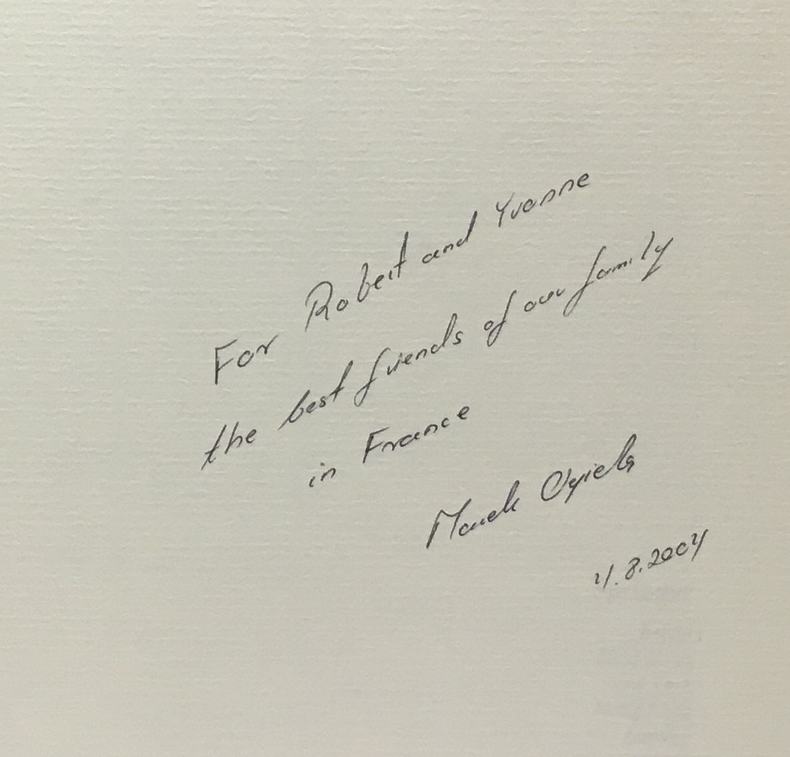 For Robert and Yvonne
the best friends of our family
in France
Marek Ogiela
4.8.2004